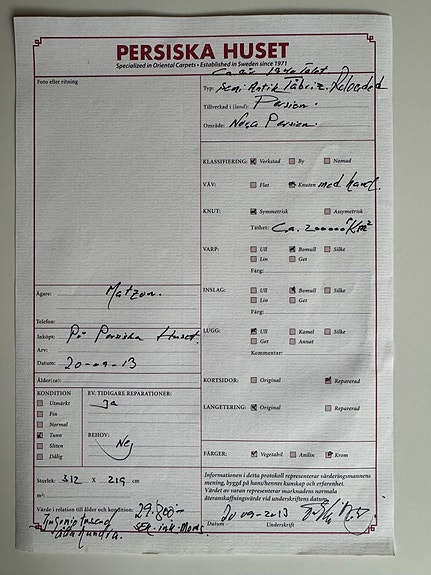 PERSISKA HUSET
Specialized in Oriental Carpets • Established in Sweden since 1971
Foto eller ritning
Ca år 1940 Talet
Typ: Semi Antik Täbriz.
Tillverkad i (land): Persien.
Område: Persien.
KLASSIFIERING: Verkstad By Nomad
VÄV: Flat Knuten med hand.
KNUT: Symmetrisk Assymetrisk
Täthet: Ca. 200000 K/m²
VARP: Ull Bomull Silke
Lin Get
Färg:
INSLAG: Ull Bomull Silke
Lin Get
Färg:
LUGG: Ull Kamel Silke
Get Annat
Kommentar:
KORTSIDOR: Original Reparerad
LANGETERING: Original Reparerad
FÄRGER: Vegetabil Anilin Krom
Ägare: Matzon.
Telefon:
Inköpt: På Persiska Huset.
Arv:
Datum: 20-09-13
Ålder(ca):
KONDITION
Utmärkt
Fin
Normal
Tunn
Sliten
Dålig
EV. TIDIGARE REPARATIONER:
Ja
BEHOV:
Nej
Storlek: 312 X 219 cm
m²:
Värde i relation till ålder och kondition: 29.800:-
Tjugoniotusend
åttahundra.
SEK. ink. Moms.
Informationen i detta protokoll representerar värderingsmannens
mening, byggd på hans/hennes kunskap och erfarenhet.
Värdet av varan representerar marknadens normala
återanskaffningsvärde vid underskriftens datum.
20 09-2013
Datum Underskrift